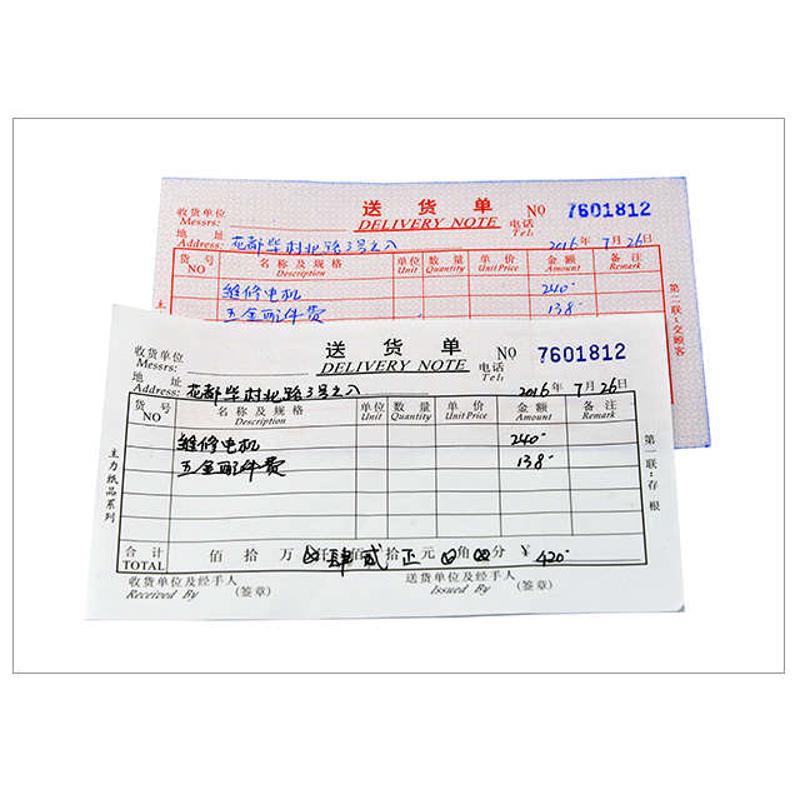 送货单 NO 7601812
收货单位
Messrs:
DELIVERY NOTE 电话
Tel:
地址
Address: 花都毕村北路3号之八 2016年7月26日
货号 名称及规格 单位 数量 单价 金额 备注
NO Description Unit Quantity Unit Price Amount Remark
维修电机 240
五金配件费 138
第二联:交顾客
主
送货单 NO 7601812
收货单位
Messrs:
DELIVERY NOTE 电话
Tel:
地址
Address: 花都毕村北路3号之八 2016年7月26日
货号 名称及规格 单位 数量 单价 金额 备注
NO Description Unit Quantity Unit Price Amount Remark
维修电机 240
五金配件费 138
主力纸品系列
第一联:存根
合计 佰拾万仟肆佰贰拾正元角分 ¥ 420
TOTAL
收货单位及经手人 (签章) 送货单位及经手人 (签章)
Received By Issued By